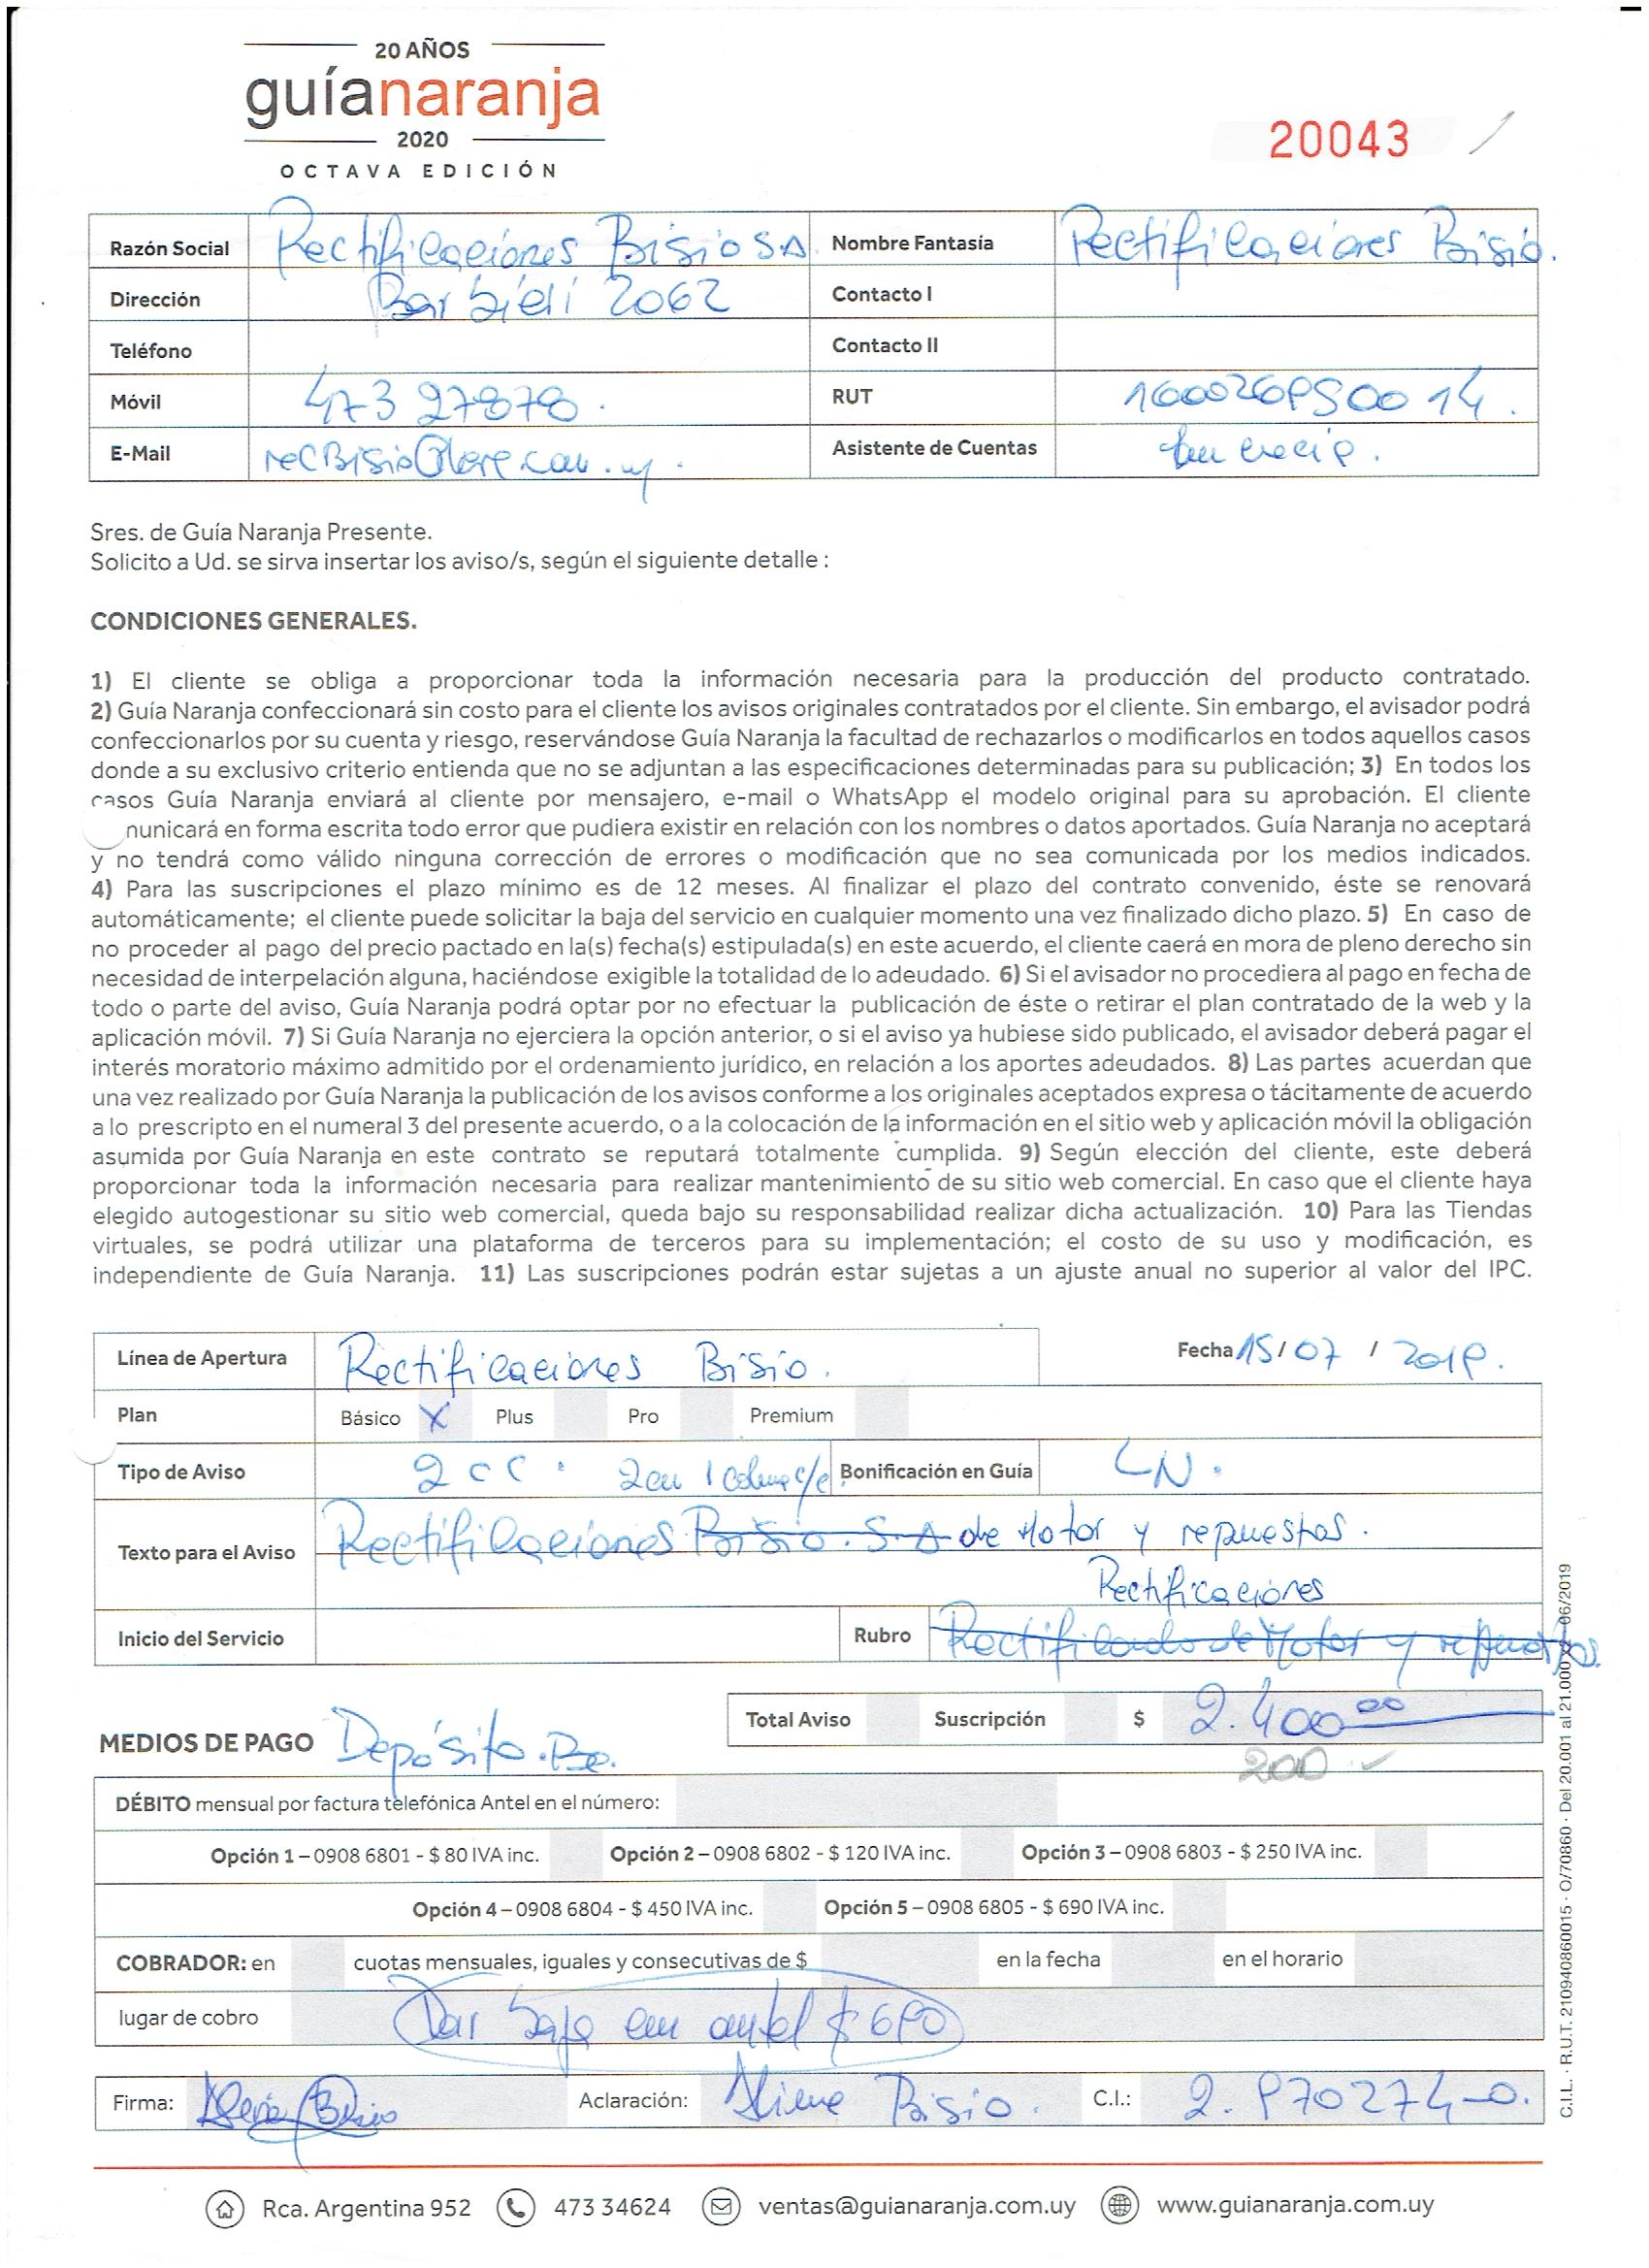 20 AÑOS
guíanaranja
2020
OCTAVA EDICIÓN
20043
Razón Social Rectificaciones Bisio SA Nombre Fantasía Rectificaciones Bisio.
Dirección Barbieri 2062 Contacto I
Teléfono Contacto II
Móvil 473 27878. RUT
E-Mail Asistente de Cuentas
Sres. de Guía Naranja Presente.
Solicito a Ud. se sirva insertar los aviso/s, según el siguiente detalle :
CONDICIONES GENERALES.
1) El cliente se obliga a proporcionar toda la información necesaria para la producción del producto contratado.
2) Guía Naranja confeccionará sin costo para el cliente los avisos originales contratados por el cliente. Sin embargo, el avisador podrá
confeccionarlos por su cuenta y riesgo, reservándose Guía Naranja la facultad de rechazarlos o modificarlos en todos aquellos casos
donde a su exclusivo criterio entienda que no se adjuntan a las especificaciones determinadas para su publicación; 3) En todos los
casos Guía Naranja enviará al cliente por mensajero, e-mail o WhatsApp el modelo original para su aprobación. El cliente
nunicará en forma escrita todo error que pudiera existir en relación con los nombres o datos aportados. Guía Naranja no aceptará
y no tendrá como válido ninguna corrección de errores o modificación que no sea comunicada por los medios indicados.
4) Para las suscripciones el plazo mínimo es de 12 meses. Al finalizar el plazo del contrato convenido, éste se renovará
automáticamente; el cliente puede solicitar la baja del servicio en cualquier momento una vez finalizado dicho plazo. 5) En caso de
no proceder al pago del precio pactado en la(s) fecha(s) estipulada(s) en este acuerdo, el cliente caerá en mora de pleno derecho sin
necesidad de interpelación alguna, haciéndose exigible la totalidad de lo adeudado. 6) Si el avisador no procediera al pago en fecha de
todo o parte del aviso, Guía Naranja podrá optar por no efectuar la publicación de éste o retirar el plan contratado de la web y la
aplicación móvil. 7) Si Guía Naranja no ejerciera la opción anterior, o si el aviso ya hubiese sido publicado, el avisador deberá pagar el
interés moratorio máximo admitido por el ordenamiento jurídico, en relación a los aportes adeudados. 8) Las partes acuerdan que
una vez realizado por Guía Naranja la publicación de los avisos conforme a los originales aceptados expresa o tácitamente de acuerdo
a lo prescripto en el numeral 3 del presente acuerdo, o a la colocación de la información en el sitio web y aplicación móvil la obligación
asumida por Guía Naranja en este contrato se reputará totalmente cumplida. 9) Según elección del cliente, este deberá
proporcionar toda la información necesaria para realizar mantenimiento de su sitio web comercial. En caso que el cliente haya
elegido autogestionar su sitio web comercial, queda bajo su responsabilidad realizar dicha actualización. 10) Para las Tiendas
virtuales, se podrá utilizar una plataforma de terceros para su implementación; el costo de su uso y modificación, es
independiente de Guía Naranja. 11) Las suscripciones podrán estar sujetas a un ajuste anual no superior al valor del IPC.
Línea de Apertura Rectificaciones Bisio. Fecha 15/07/2019.
Plan Básico X Plus Pro Premium
Tipo de Aviso 2 CC. Bonificación en Guía LN.
Texto para el Aviso Rectificaciones Bisio. S.A de Motor y repuestos.
Rectificaciones
Inicio del Servicio Rubro Rectificado de Motor y repuestos.
Total Aviso Suscripción $ 2.400 00
MEDIOS DE PAGO Depósito.Bo. 200
DÉBITO mensual por factura telefónica Antel en el número:
Opción 1 – 0908 6801 - $ 80 IVA inc. Opción 2 – 0908 6802 - $ 120 IVA inc. Opción 3 – 0908 6803 - $ 250 IVA inc.
Opción 4 – 0908 6804 - $ 450 IVA inc. Opción 5 – 0908 6805 - $ 690 IVA inc.
COBRADOR: en cuotas mensuales, iguales y consecutivas de $ en la fecha en el horario
lugar de cobro Dar baja en antel $ 690
Firma: Aclaración: Bisio. C.I.: 2.970274-0.
C.I.L. · R.U.T. 210940860015 · O/70860 · Del 20.001 al 21.000 06/2019
Rca. Argentina 952 473 34624 ventas@guianaranja.com.uy www.guianaranja.com.uy